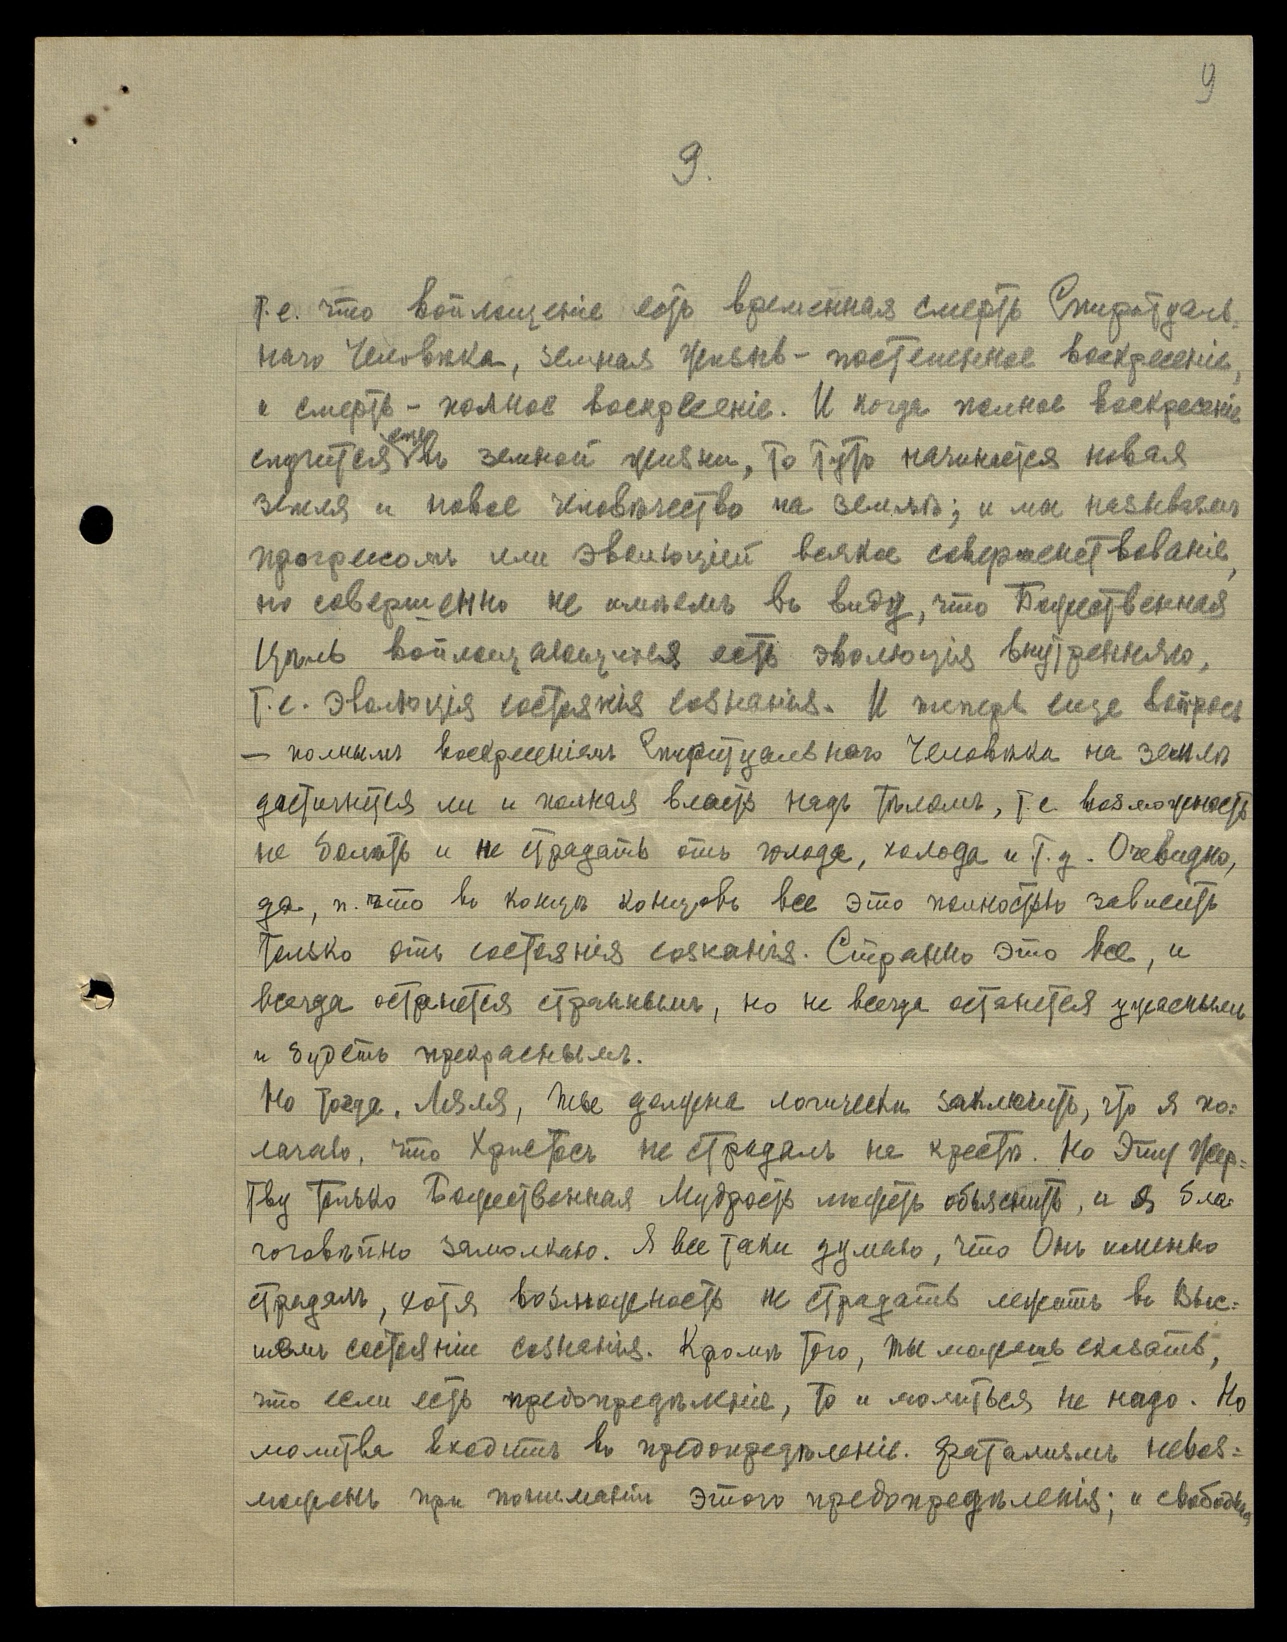 9
9.
т.е. что воплощеніе есть временная смерть Спиритуаль=
наго Человѣка, земная жизнь – постепенное воскресеніе,
и смерть – полное воскресеніе. И когда полное воскресеніе
случится еще въ земной жизни, то тутъ начинается новая
земля и новое человѣчество на землѣ; и мы называемъ
прогрессомъ или эволюціей всякое совершенствованіе,
но совершенно не имѣемъ въ виду, что Божественная
Цѣль воплощающихся есть эволюція внутренняя,
т.е. эволюція состоянія сознанія. И теперь еще вопросъ
– полнымъ воскресеніемъ Спиритуальнаго Человѣка на землѣ
достигнется ли и полная власть надъ тѣломъ, т.е. возможность
не болѣть и не страдать отъ голода, холода и т.д. Очевидно,
да, п. что въ концѣ концовъ все это полностью зависитъ
только отъ состоянія сознанія. Странно это все, и
всегда останется страннымъ, но не всегда останется ужаснымъ
и будетъ прекраснымъ.
Но тогда, Ляля, ты должна логически заключить, что я по=
лагаю, что Христосъ не страдалъ на крестѣ. Но Эту Жер=
тву только Божественная Мудрость можетъ объяснить, и я бла=
гоговѣйно замолкаю. Я все таки думаю, что Онъ именно
страдалъ, хотя возможность не страдать лежитъ въ Выс=
шемъ состояніи сознанія. Кромѣ того, ты можешь сказать,
что если есть предопредѣленіе, то и молиться не надо. Но
молитва входитъ въ предопредѣленіе. Фатализмъ невоз=
моженъ при пониманіи этого предопредѣленія; и свободная